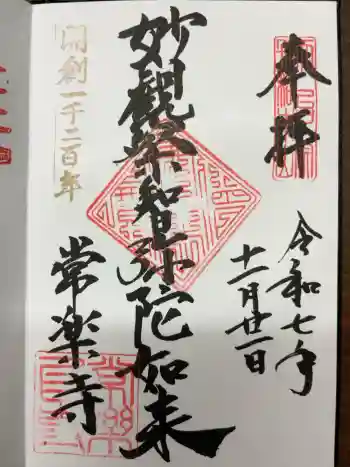 奉拝
令和七年
十二月廿一日
妙観察智弥陀如来
開創一千二百年
常楽寺